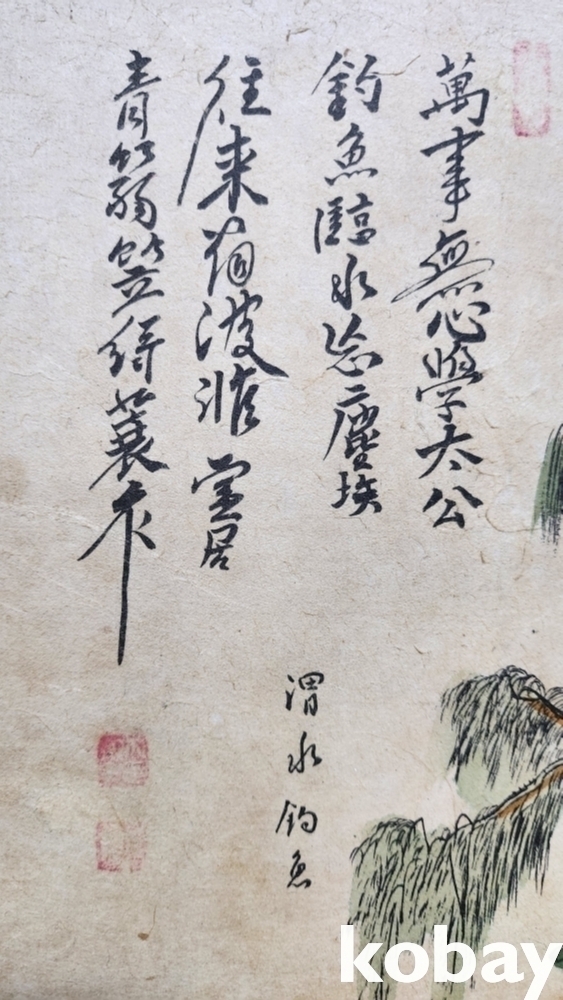 萬事無心學太公
釣魚臨水忘塵埃
往來有波濰堂居
青蒻笠綠蓑衣
渭水釣魚
kobay